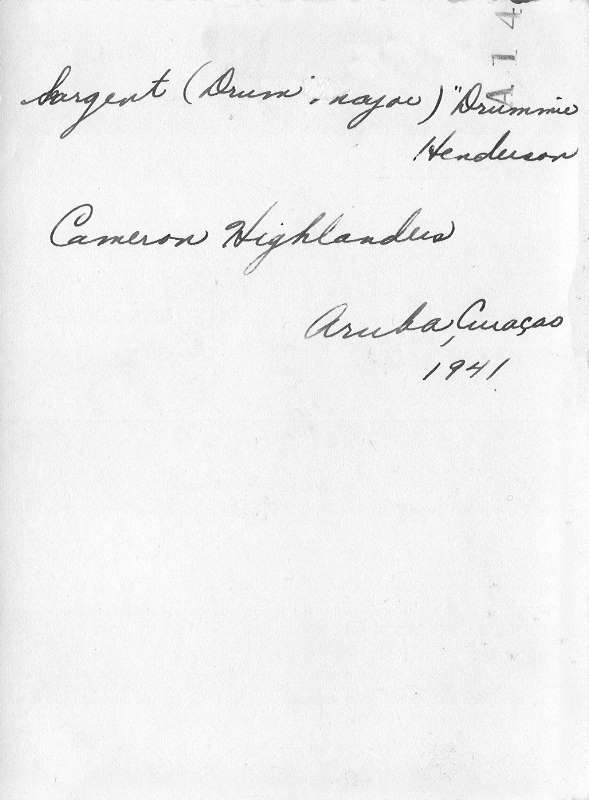 Sargent (Drum. major) "Drummie
Henderson
Cameron Highlanders
Aruba, Curaçao
1941
A14